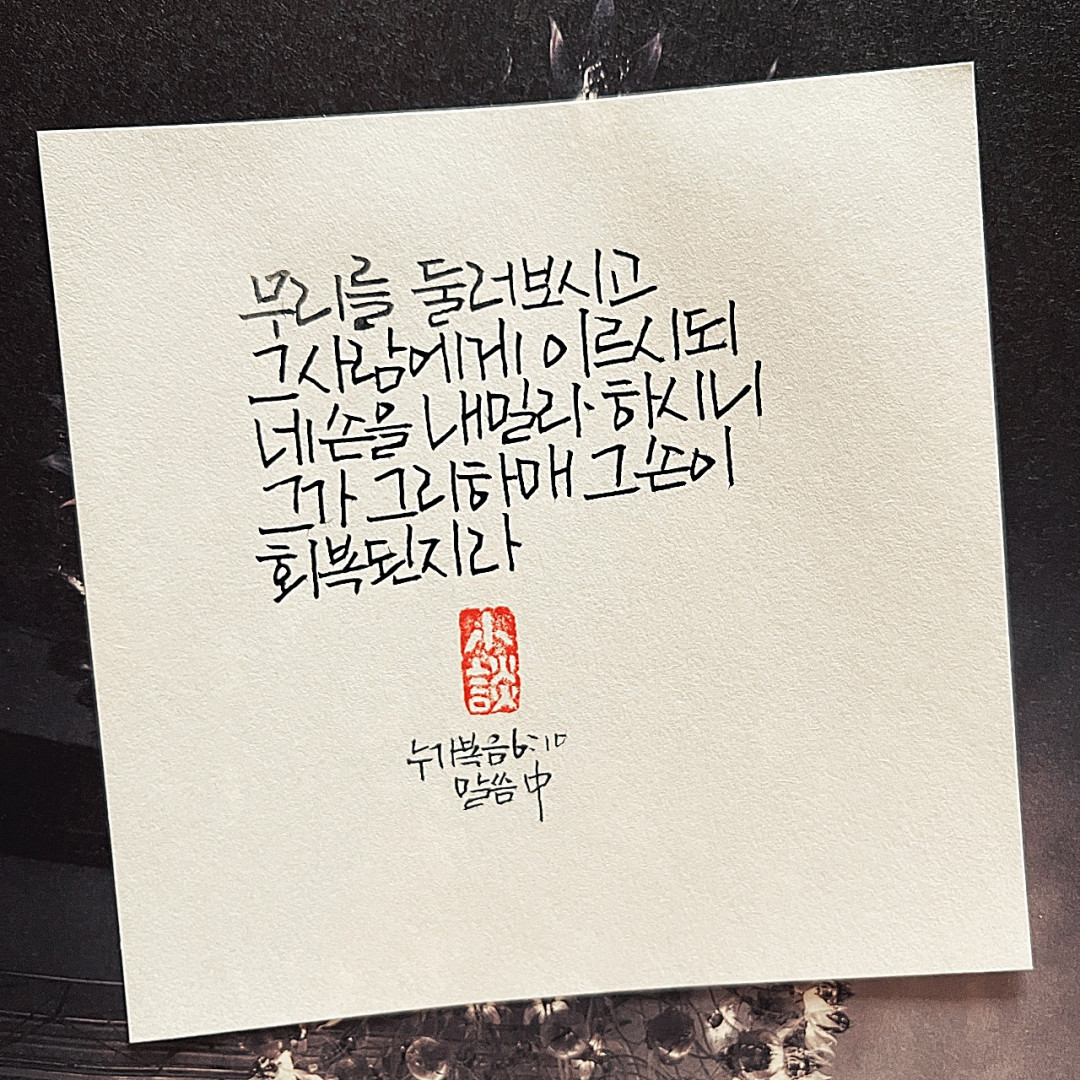 무리를 둘러보시고
그 사람에게 이르시되
네 손을 내밀라 하시니
그가 그리하매 그 손이
회복된지라
小談
누가복음 6:10
말씀 中